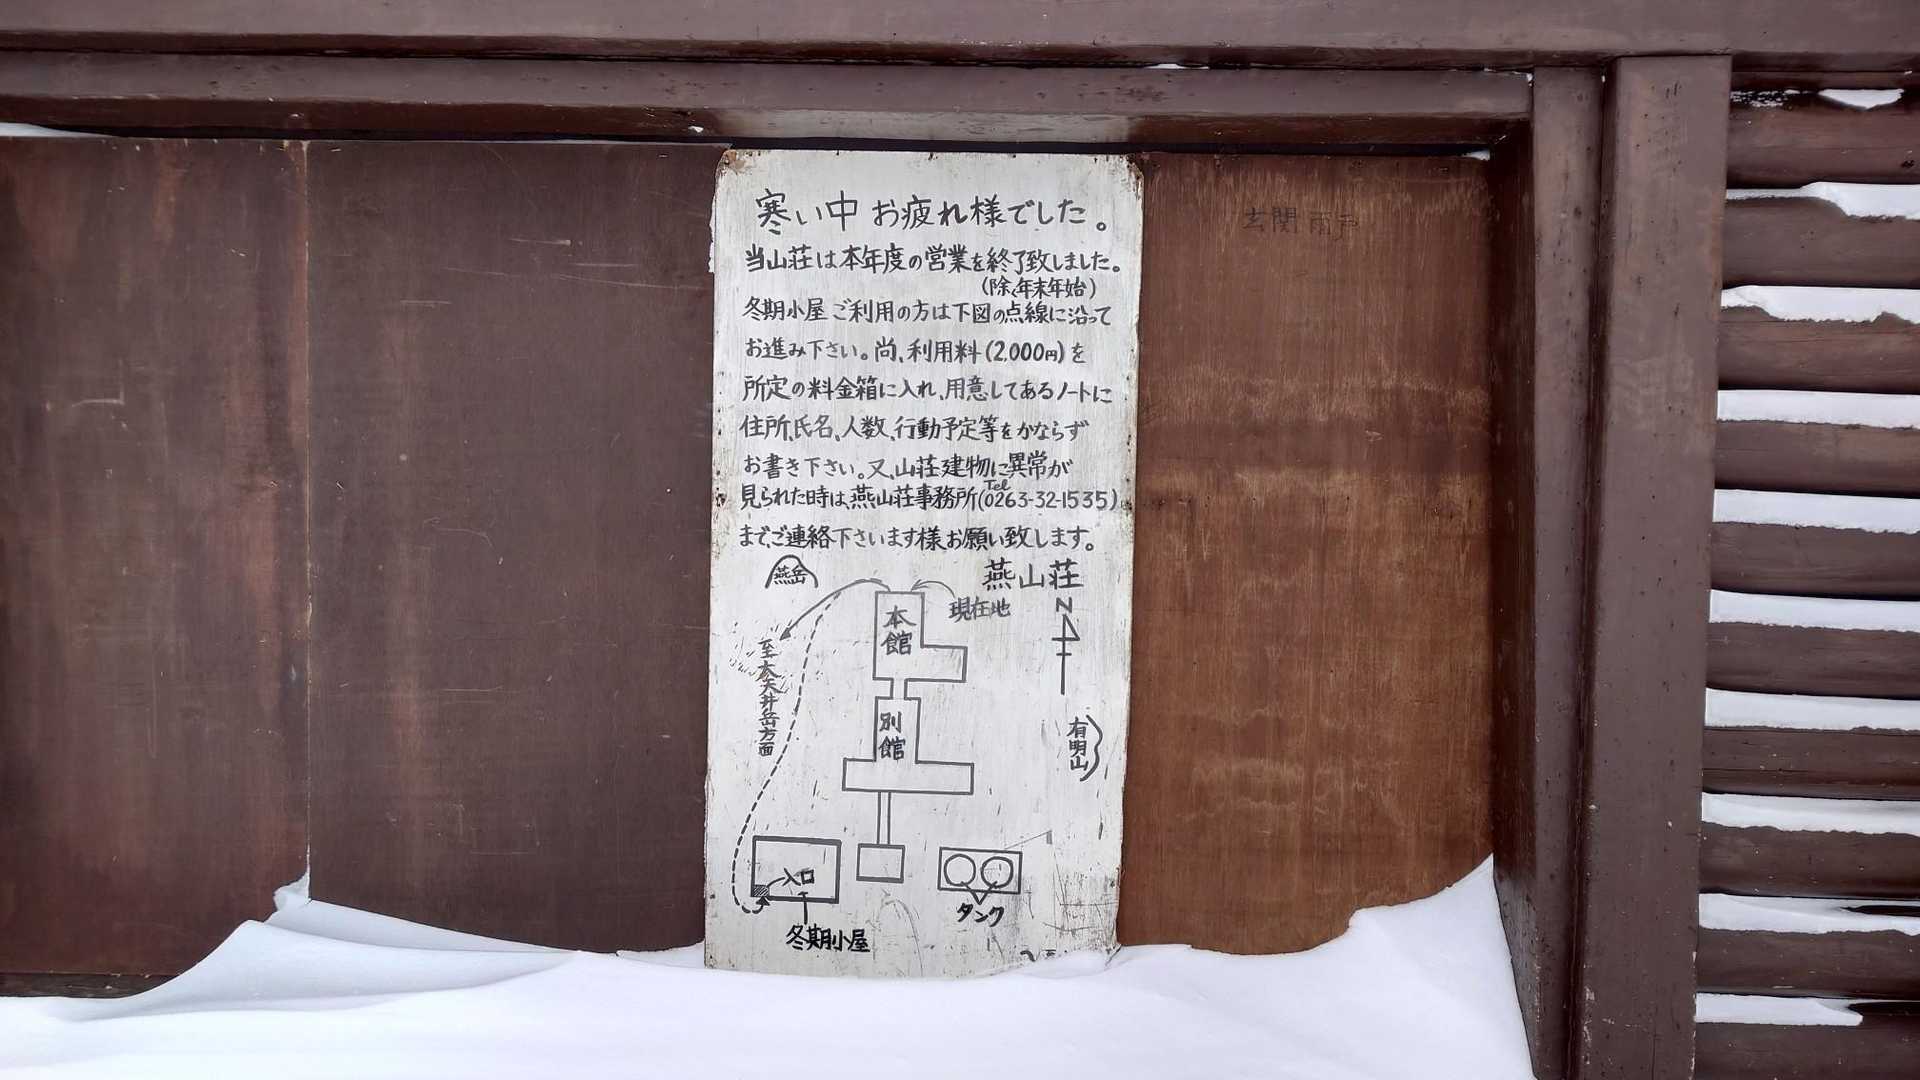 寒い中お疲れ様でした。
当山荘は本年度の営業を終了致しました。
(除、年末年始)
冬期小屋ご利用の方は下図の点線に沿って
お進み下さい。尚、利用料(2,000円)を
所定の料金箱に入れ、用意してあるノートに
住所、氏名、人数、行動予定等をかならず
お書き下さい。又、山荘建物に異常が
見られた時は、燕山荘事務所(Tel 0263-32-1535)
までご連絡下さいます様、お願い致します。
燕山荘
燕岳
現在地
N
本館
至大天井岳方面
別館
有明山
入口
タンク
冬期小屋
玄関雨戸